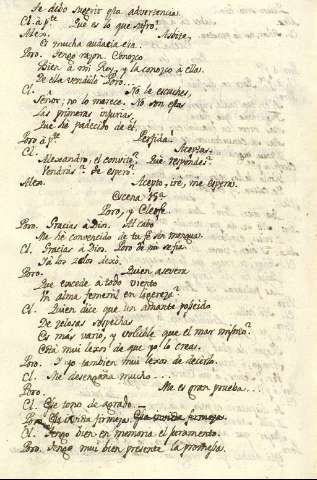 Se debo sufrir esta advertencia.
Cl. à pte. Que es lo que sufro.
Alex. Asbite.
Es mucha audacia esa.
Poro. Tengo razon. Conozco
Bien à mi Rey, y la conozco à ella.
De ella vendido Poro...
Cl. No le escuches,
Señor; no lo merece. No son estas
Las primeras injurias,
Que hà padecido de él.
Poro à pte. Perfida!
Cl. Aceptas
Alexandro, el convite? Que respondes?
Vendràs? Te espero?
Alex. Acepto, iré, me espera.
Escena 15ª
Poro, y Cleofe
Poro. Gracias à Dios. Al cabo
Me hè convencido de tu fe sin mengua.
Cl. Gracias à Dios. Poro de mi se fia.
Yà los zelos dexò.
Poro. Quien asevera
Que excede à todo viento
Un alma femenil en ligereza?
Cl. Quien dice que un amante poseido
De zelosas sospechas
Es mas vario, y voluble que el mar mismo?
Està mui lexos de que yo lo crea.
Poro. Y yo tambien mui lexos de decirlo.
Cl. Me desengaña mucho.
Poro. Me es gran prueba...
Cl. Ese tono de agrado...
Poro. Esa invicta firmeza.
Cl. Tengo bien en memoria el juramento.
Poro. Tengo mui bien presente la promesa.